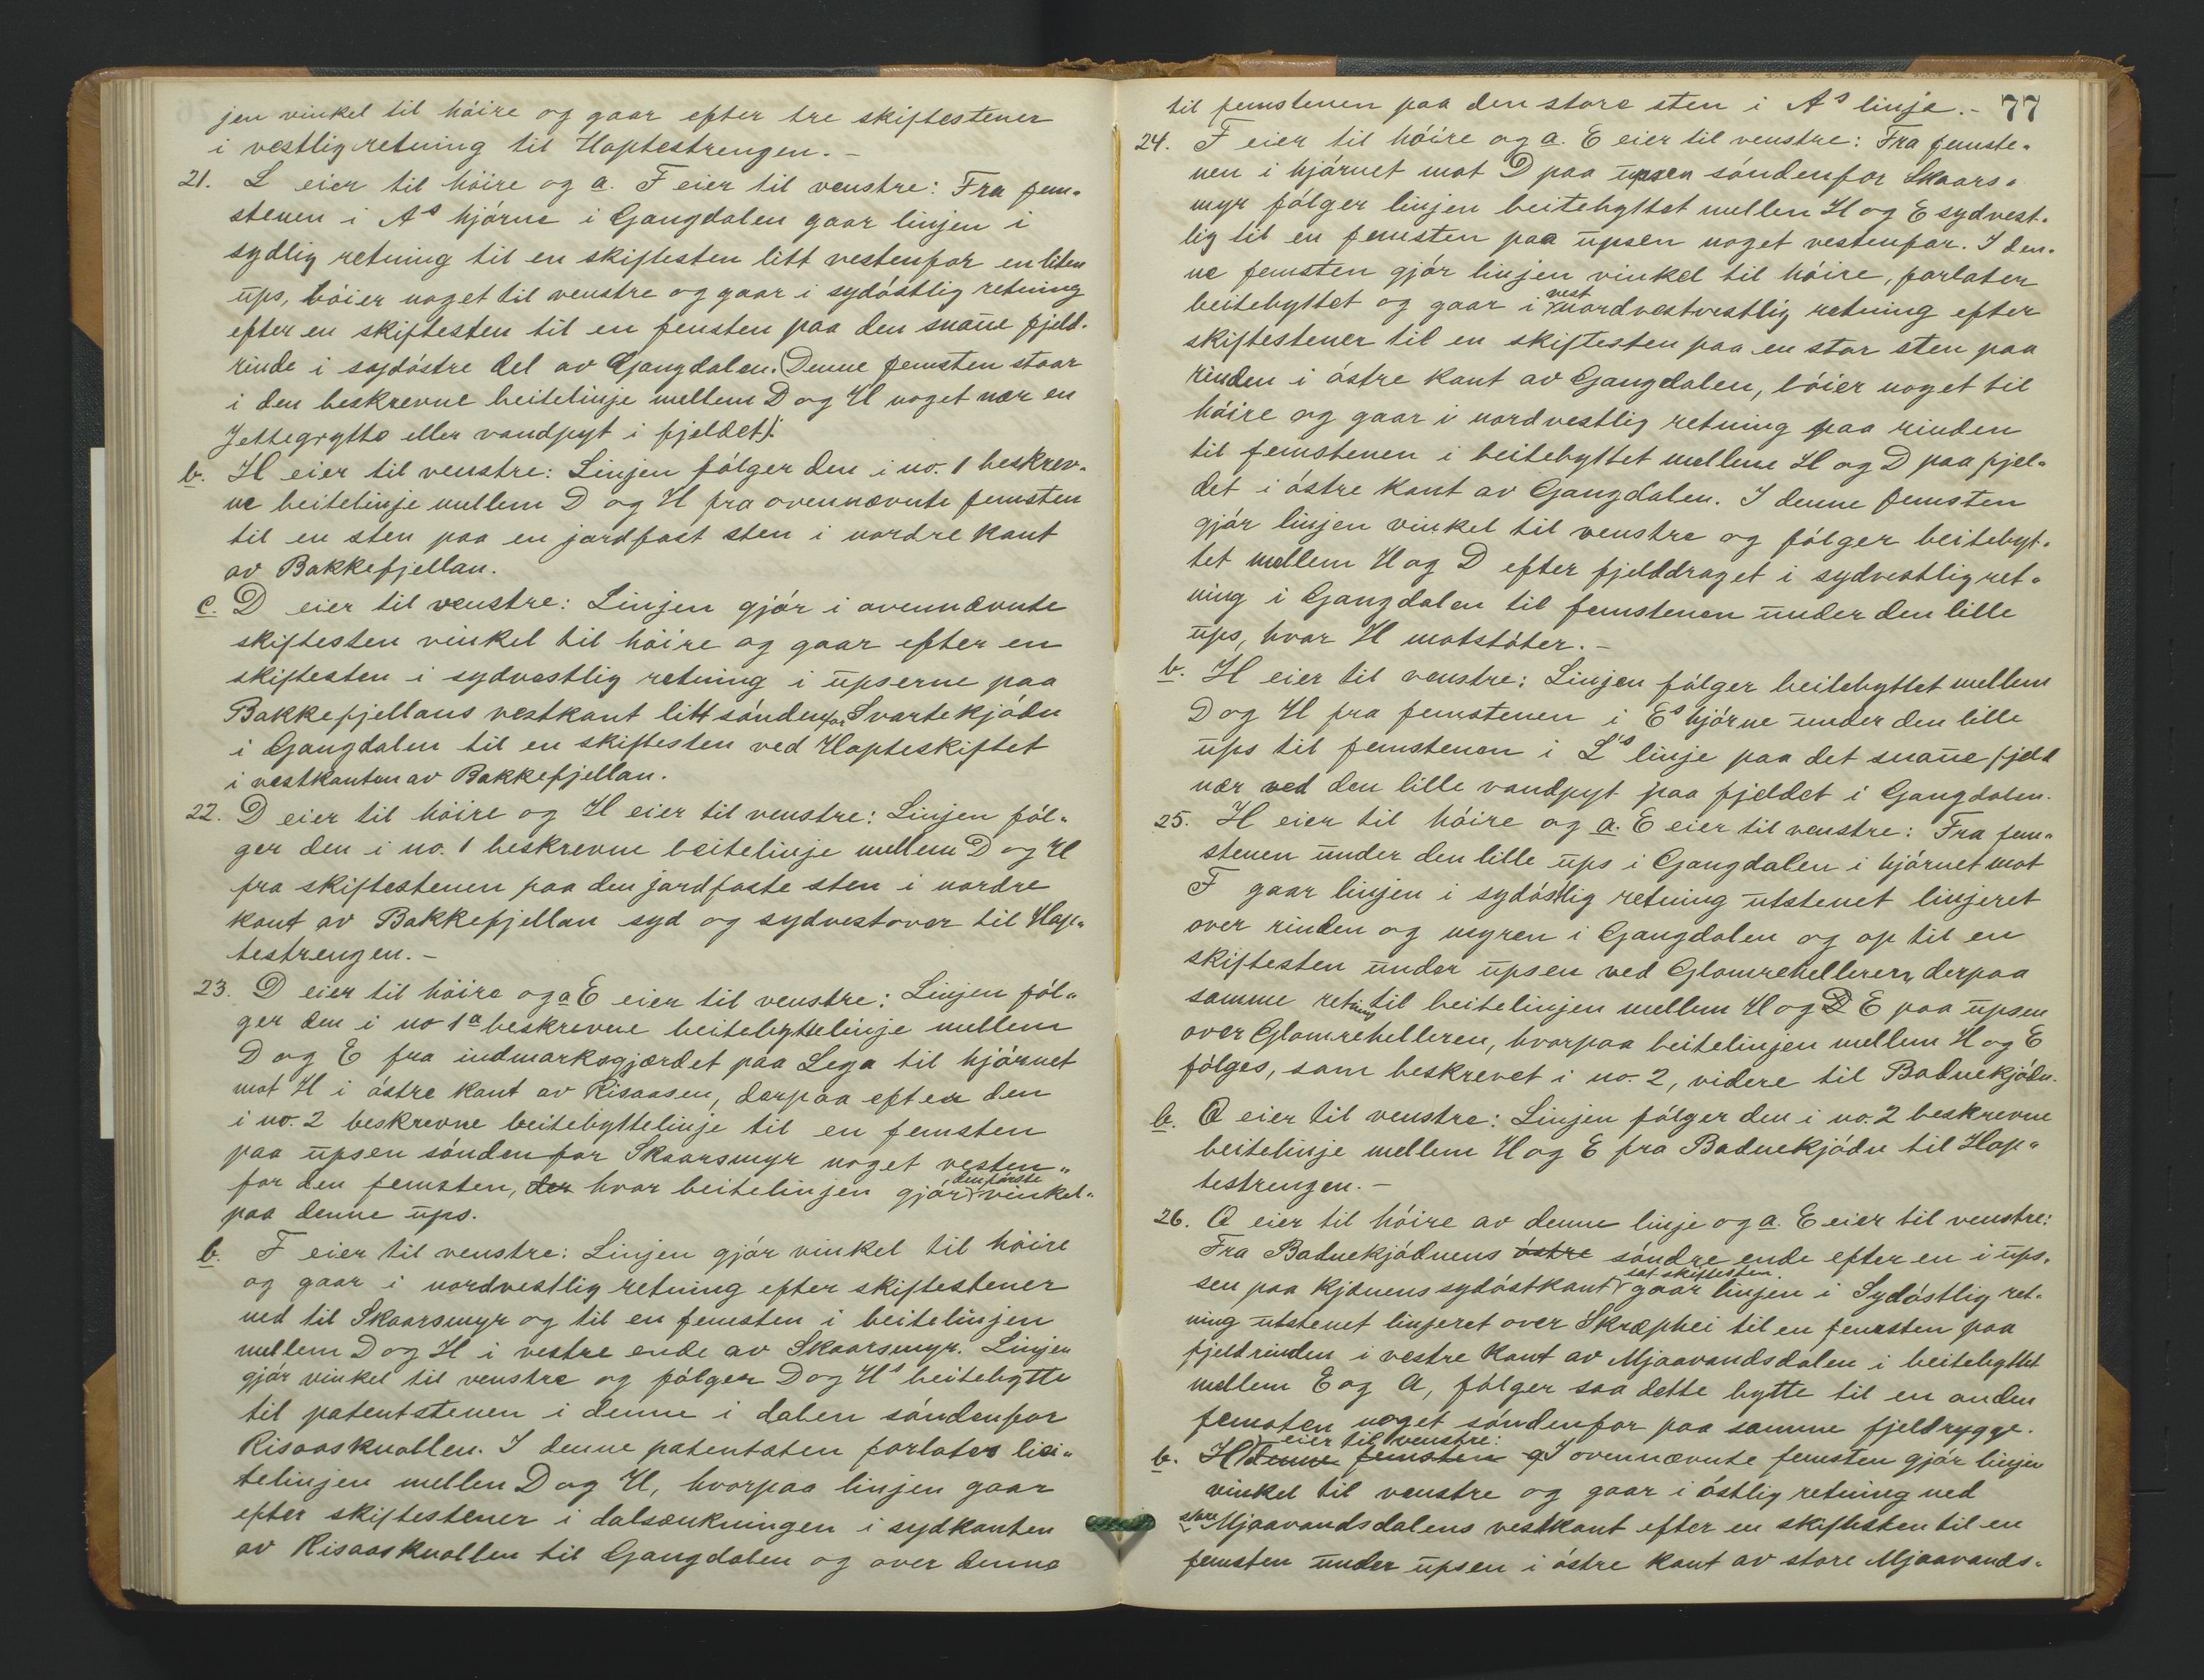 jen vinkel til höire og gaar efter tre skiftestener
i vestlig retning til Haptestrengen. -
21. L eier til höire og a. F eier til venstre: Fra fem-
stenen i As hjörne i Gangdalen gaar linjen i
sydlig retning til en skiftesten litt vestenfor en liten
ups, böier noget til venstre og gaar i sydöstlig retning
efter en skiftesten til en femsten paa den snaue fjeld-
rinde i sydöstre del av Gangdalen. Denne femsten staar
i den beskrevne beitelinje mellem D og H noget nær en
Jettegrytte eller vandpyt i fjeldet).
b. H eier til venstre: Linjen fölger den i no. 1 beskrev-
ne beitelinje mellem D og H fra ovennævnte femsten
til en sten paa en jordfast sten i nordre kant
av Bakkefjellan.
c. D eier til venstre: Linjen gjör i ovennævnte
skiftesten vinkel til höire og gaar efter en
skiftesten i sydvestlig retning i upserne paa
Bakkefjellans vestkant litt söndenfor Svartekjödn
i Gangdalen til en skiftesten ved Hapteskiftet
i vestkanten av Bakkefjellan.
22. D eier til höire og H eier til venstre: Linjen föl-
ger den i no. 1 beskrevne beitelinje mellem D og H
fra skiftestenen paa den jordfaste sten i nordre
kant av Bakkefjellan syd og sydvestover til Hap-
testrengen. -
23. D eier til höire og a E eier til venstre: Linjen föl-
ger den i no 1a beskrevne beitebyttelinje mellem
D og E fra indmarksgjærdet paa Lega til hjörnet
mot H i östre kant av Risaasen, derpaa efter den
i no. 2 beskrevne beitebyttelinje til en femsten
paa upsen söndenfor Skaarsmyr noget vesten-
for den femsten, der hvor beitelinjen gjör den förste vinkel-
paa denne ups.
b. F eier til venstre: Linjen gjör vinkel til höire
og gaar i nordvestlig retning efter skiftestener
ned til Skaarsmyr og til en femsten i beitelinjen
mellem D og H i vestre ende av Skaarsmyr. Linjen
gjör vinkel til venstre og fölger D og Hs beitebytte
til patentstenen i denne i dalen söndenfor
Risaasknollen. I denne patentsten forlates bei-
telinjen mellen D og H, hvorpaa linjen gaar
efter skiftestener i dalsænkningen i sydkanten
av Risaasknollen til Gangdalen og over denne
77
til femstenen paa den store sten i As linje. -
24. F eier til höire og a. E eier til venstre: Fra femste-
nen i hjörnet mot D paa upsen söndenfor Skaars-
myr fölger linjen beitebyttet mellen H og E sydvest-
lig til en femsten paa upsen noget vestenfor. I den-
ne femsten gjör linjen vinkel til höire, forlater
beitebyttet og gaar i vest nordvestvestlig retning efter
skiftestener til en skiftesten paa en stor sten paa
rinden i östre kant av Gangdalen, böier noget til
höire og gaar i nordvestlig retning paa rinden
til femstenen i beitebyttet mellem H og D paa fjel-
det i östre kant av Gangdalen. I denne femsten
gjör linjen vinkel til venstre og fölger beitebyt-
tet mellem H og D efter fjelddraget i sydvestlig ret-
ning i Gangdalen til femstenen under den lille
ups, hvor H motstöter. -
b. H eier til venstre: Linjen fölger beitebyttet mellem
D og H fra femstenen i Es hjörne under den lille
ups til femstenen i L's linje paa det snaue fjeld
nær ved den lille vandpyt paa fjeldet i Gangdalen.
25. H eier til höire og a. E eier til venstre: Fra fem-
stenen under den lille ups i Gangdalen i hjörnet mot
F gaar linjen i sydöstlig retning utstenet linjeret
over rinden og myren i Gangdalen og op til en
skiftesten under upsen ved Glomrehelleren, derpaa
samme retning til beitelinjen mellem H og D E paa upsen
over Glomrehelleren, hvorpaa beitelinjen mellem H og E
fölges, som beskrevet i no. 2, videre til Baduekjödn.
b. Q eier til venstre: Linjen fölger den i no. 2 beskrevne
beitelinje mellem H og E fra Baduekjödn til Hap-
testrengen. -
26. Q eier til höire av denne linje og a. E eier til venstre:
Fra Baduekjödnens östre söndre ende efter en i ups-
sen paa kjönens sydöstkant sat skiftesten. gaar linjen i Sydöstlig ret-
ning utstenet linjeret over Skræphei til en femsten paa
fjeldrinden i vestre kant av Mjaavandsdalen i beitebyttet
mellem E og A, fölger saa dette bytte til en anden
femsten noget söndenfor paa samme fjeldrygge.
b. H eier til venstre: denne femsten g I ovennævnte femsten gjör linjen
vinkel til venstre og gaar i östlig retning ned
store Mjaavandsdalens vestkant efter en skiftesten til en
femsten under upsen i östre kant av store Mjaavands-